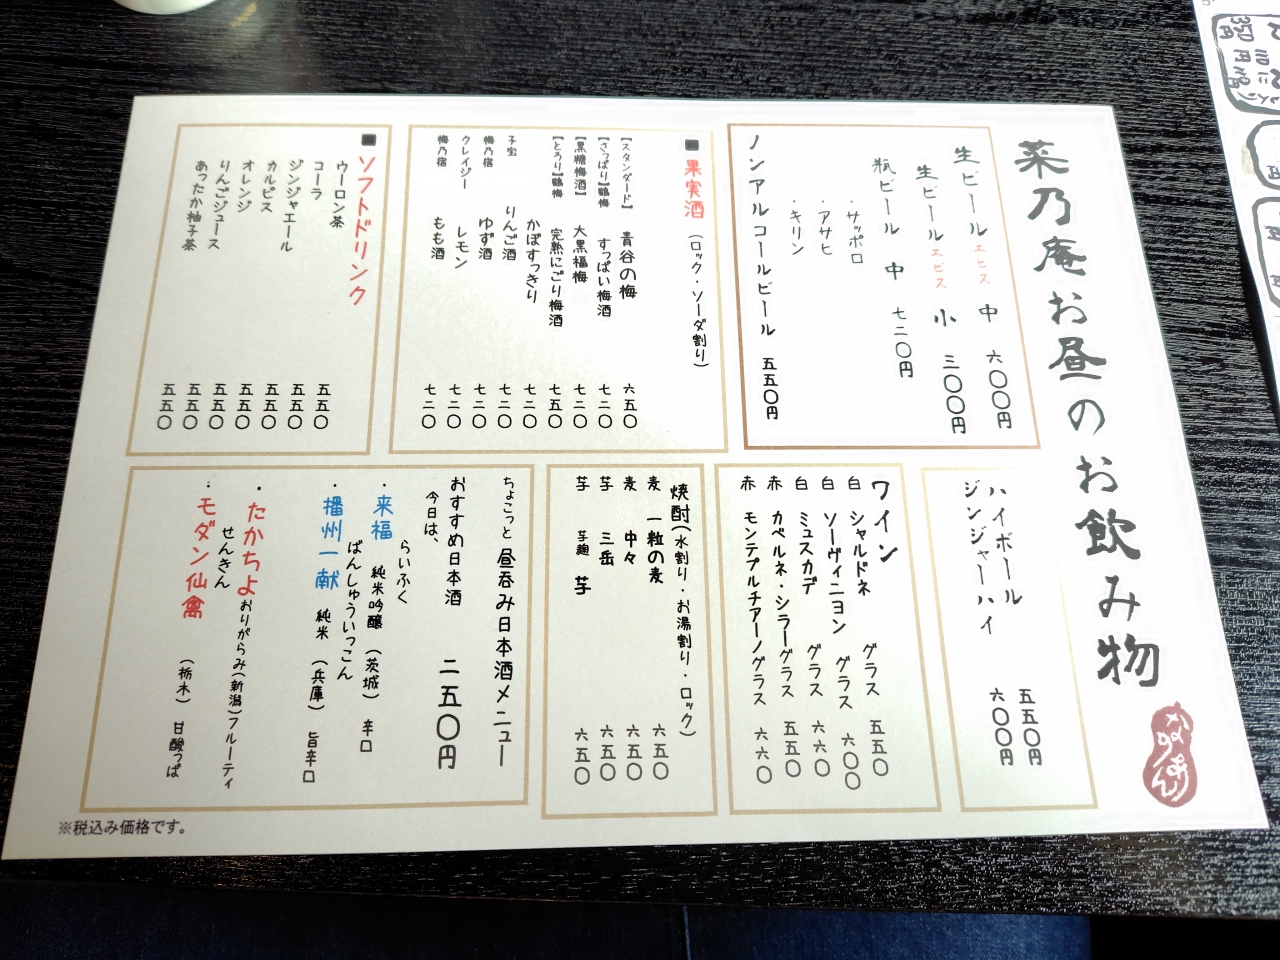 菜乃庵お昼のお飲み物
生ビール エビス 中 六〇〇円
生ビール エビス 小 三〇〇円
瓶ビール 中 七二〇円
・サッポロ
・アサヒ
・キリン
ノンアルコールビール 五五〇円
■果実酒(ロック・ソーダ割り)
【スタンダード】 青谷の梅 六五〇
【さっぱり】鶴梅 すっぱい梅酒 七二〇
【黒糖梅酒】 大黒福梅 七二〇
【とろり】鶴梅 完熟にごり梅酒 七五〇
かぼすっきり 七二〇
子宝 りんご酒 七二〇
梅乃宿 ゆず酒 七二〇
クレイジー レモン 七二〇
梅乃宿 もも酒 七二〇
■ソフトドリンク
ウーロン茶 五五〇
コーラ 五五〇
ジンジャエール 五五〇
カルピス 五五〇
オレンジ 五五〇
りんごジュース 五五〇
あったか柚子茶 五五〇
ハイボール 五五〇円
ジンジャーハイ 六〇〇円
ワイン
白 シャルドネ グラス 五五〇
白 ソーヴィニヨン グラス 六〇〇
白 ミュスカデ グラス 六六〇
赤 カベルネ・シラーグラス 五五〇
赤 モンテプルチアーノグラス 六六〇
焼酎(水割り・お湯割り・ロック)
麦 一粒の麦 六五〇
麦 中々 六五〇
芋 三岳 六五〇
芋 芋麹 芋 六五〇
ちょこっと 昼呑み日本酒メニュー
おすすめ日本酒 二五〇円
今日は、
らいふく
・来福 純米吟醸 (茨城) 辛口
ばんしゅういっこん
・播州一献 純米 (兵庫) 旨辛口
・たかちよ おりがらみ(新潟)フルーティ
せんきん
・モダン仙禽 (栃木) 甘酸っぱ
※税込み価格です。